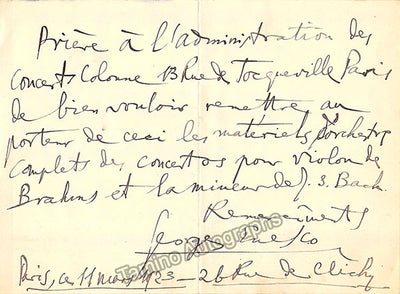 Prière à l'administration des
Concerts Colonne 13 Rue de Tocqueville Paris
de bien vouloir remettre au
porteur de ceci les matériels d'orchestre
complets des concertos pour violon de
Brahms et la mineur de J. S. Bach.
Remerciements
Georges Enesco
Paris, ce 11 mars 1923 — 26 Rue de Clichy
Tamino Autographs